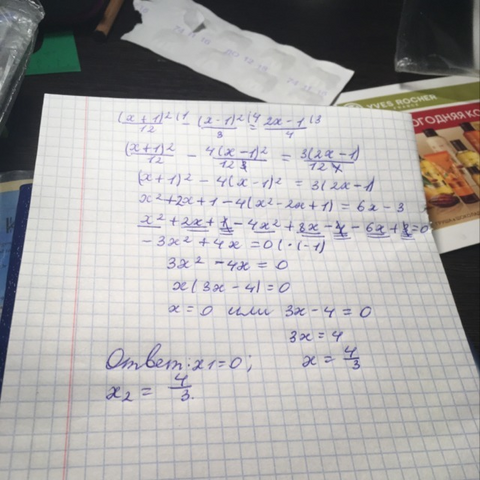 (x+1)²/12 (1 - (x-1)²/3 (4 = 2x-1/4 (3
(x+1)²/12 - 4(x-1)²/12 = 3(2x-1)/12
(x+1)² - 4(x-1)² = 3(2x-1)
x²+2x+1-4(x²-2x+1) = 6x-3
x²+2x+1-4x²+8x-4-6x+3=0
-3x²+4x=0 (·(-1)
3x²-4x=0
x(3x-4)=0
x=0 или 3x-4=0
3x=4
Ответ: x1=0; x=4/3
x2=4/3.
YVES ROCHER
FRANCE
ОГОДНЯЯ КО